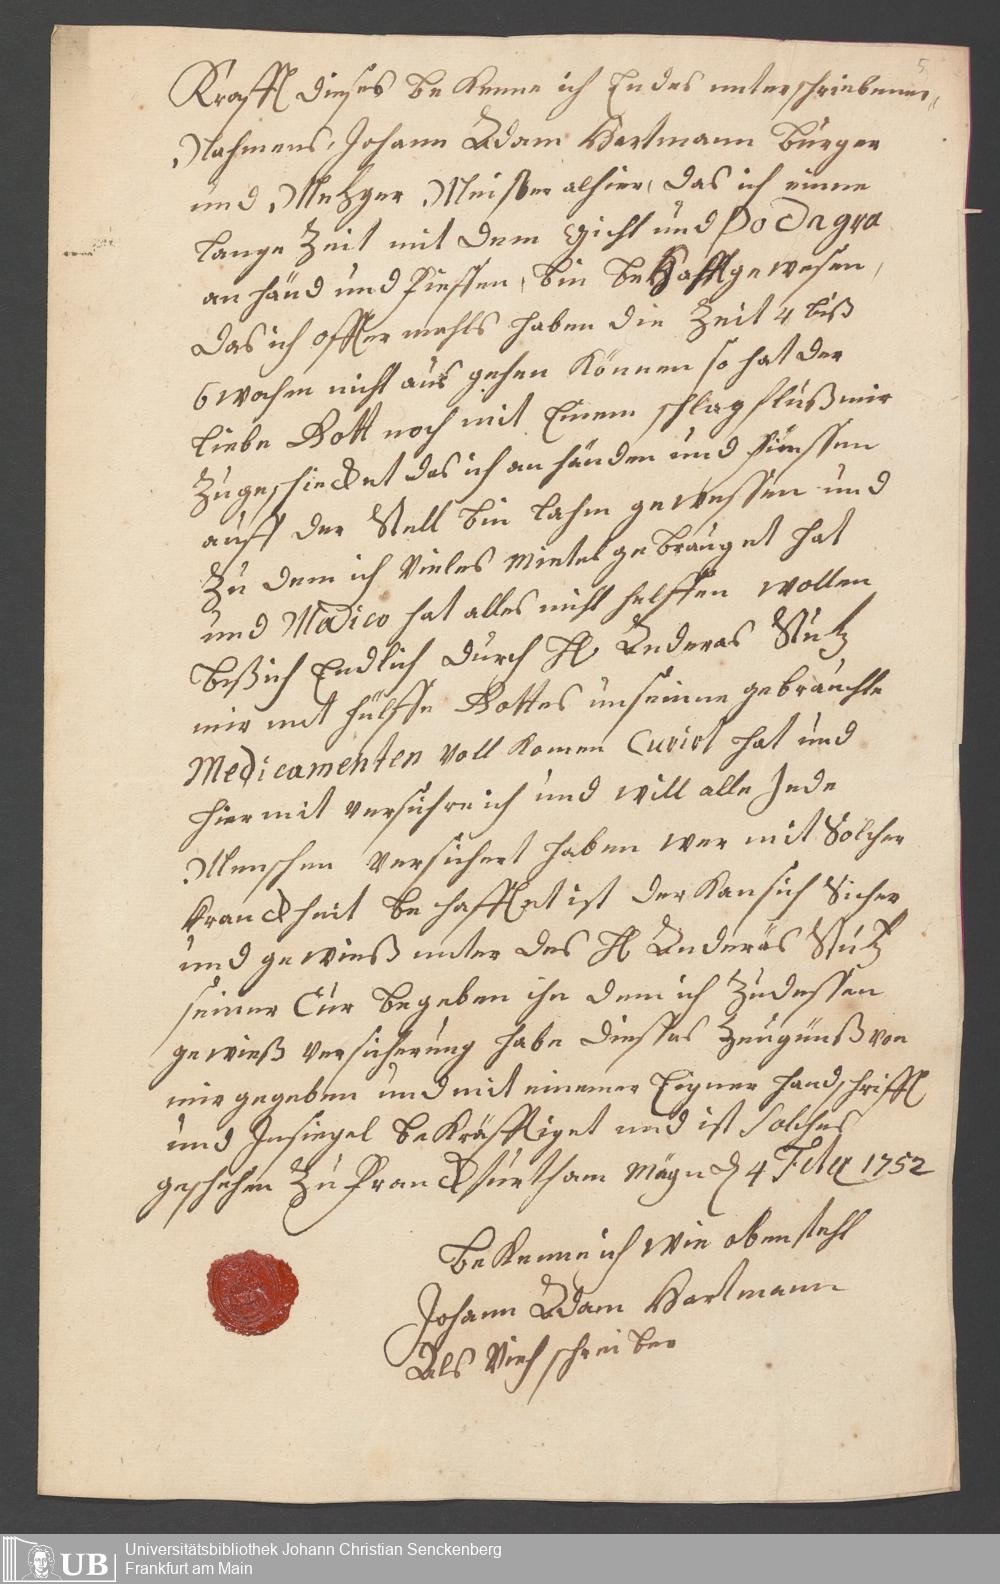 5
Krafft dieses be Kenne ich Endes unterschriebener
Nahmens, Johann Adam Hartmann bürger
und Metzger Meister alhier, das ich einne
lange Zeit mit dem gicht und Podagra
an händ und Fiessen, bin behafft gewesen,
das ich offter mahls haben die Zeit 4 biß
6 wochen nicht aus gehen Können so hat der
liebe Gott noch mit Einem schlag fluß mir
Zugeschiecket das ich an händen und Fiessen
auff der Stell bin lahm gewessen und
Zu dem ich Vieles Mietel gebrauget hat
und Madico hat alles nicht helffen wollen
biß ich Endlich durch H. Anderas Stutz
mir mit hülffe Gottes un seinne gebrauchte
Medicamenten voll Komen Curirt hat und
hier mit versichre ich und will alle Jede
Menschen versichert haben wer mit Solcher
kranckheit be hafftet ist der Kan sich Sicher
und gewieß unter des H Anderas Stutz
seiner Cur begeben ihn dem ich Zu dessen
gewieß versicherung habe diesses Zeugünß von
mir gegeben und mit einemer Eigner handschrifft
und Insiegel beKräfftiget und ist solches
geschehen Zu Franckfurth am Mäyn d 4 Feber 1752
beKenne ich wie oben steht
Johann Adam Hartmann
Als Vieh schreiber
UB
Universitätsbibliothek Johann Christian Senckenberg
Frankfurt am Main